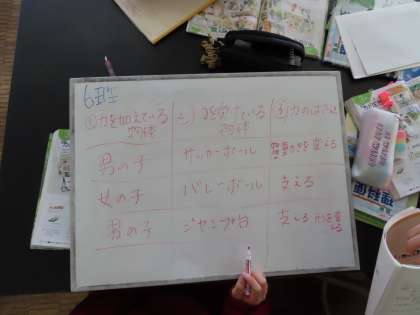 6班
①力を加えている物体
②力を受けている物体
③力のはたらき
男の子 サッカーボール 変える
女の子 バレーボール 支える
男の子 ジャンプ台 支える 形を変える